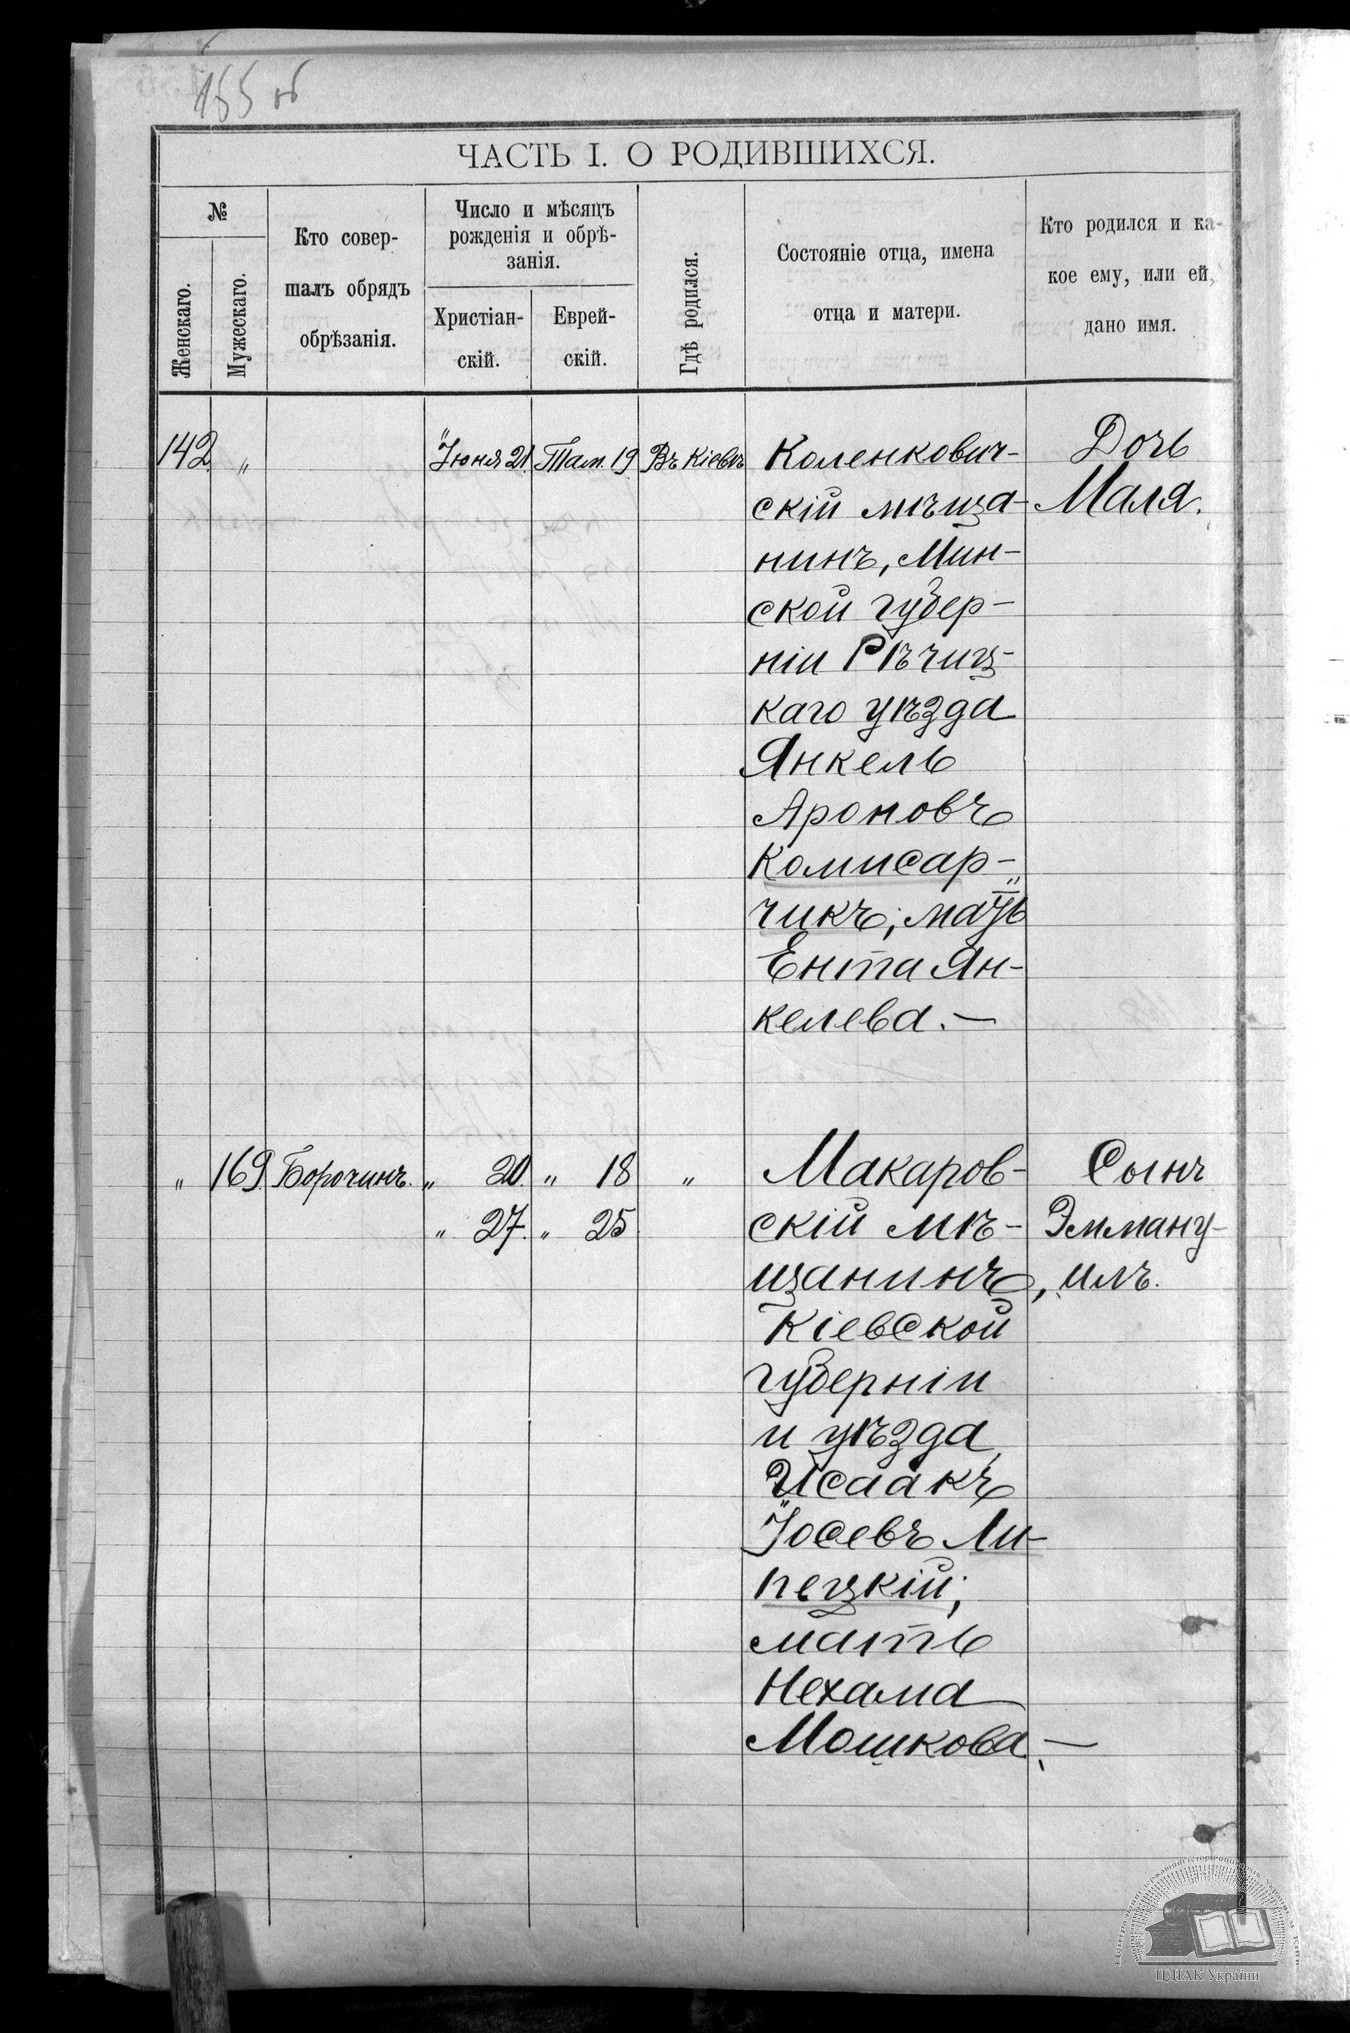 155 об
ЧАСТЬ I. О РОДИВШИХСЯ.
№
Женскаго.
Мужескаго.
Кто совер-
шалъ обрядъ
обрѣзанія.
Число и мѣсяцъ
рожденія и обрѣ-
занія.
Христіан-
скій.
Еврей-
скій.
Гдѣ родился.
Состояніе отца, имена
отца и матери.
Кто родился и ка-
кое ему, или ей,
дано имя.
142 „ Іюня 21. Там. 19 Въ Кіевѣ Коленкович- Дочь
скій мѣща- Маля.
нинъ, Мин-
ской губер-
ніи Рѣчиц-
каго уѣзда
Янкель
Ароновъ
Комисар-
чикъ; мать
Ента Ян-
келева.—
„ 169 Борочинъ. „ 20. „ 18 „ Макаров- Сынъ
„ 27. „ 25 скій мѣ- Эмману-
щанинъ, илъ.
Кіевской
губерніи
и уѣзда
Исаакъ
Іосевъ Ли-
пецкій;
мать
Нехама
Мошкова.—
ЦДІАК України